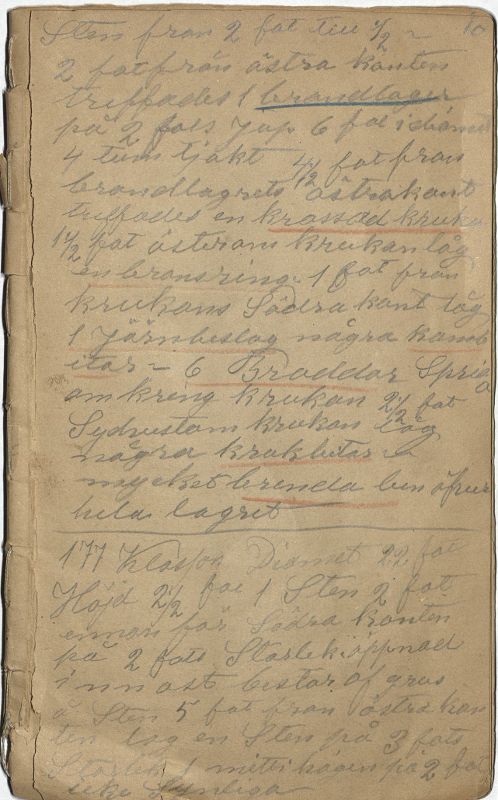 10
Sten från 2 fot till 1/2 –
2 fot från östra kanten
treffades 1 brandlager
på 2 fots jup 6 fot i diamet
4 tum tjokt 4 1/2 fot från
brandlagrets östra kant
treffades en krossad kruka
1 1/2 fot öster om krukan låg
en bronsring. 1 fot från
krukans Södra kant låg
1 Järnbeslag några kamb
itar – 6 Broddar Sprid
omkring krukan 2 1/2 fot
Sydvest om krukan låg
några krukbitar
mycket brenda ben öfver
hela lagret
177 Diamet 22 fot
Höjd 2 1/2 fot 1 Sten 2 fot
innan för Södra kanten
på 2 fots Storlek öppnad
innost bestor af grus
å Sten 5 fot från östra kan
ten låg en Sten på 3 fots
Storlek 1 mitt i högen på 2 fot